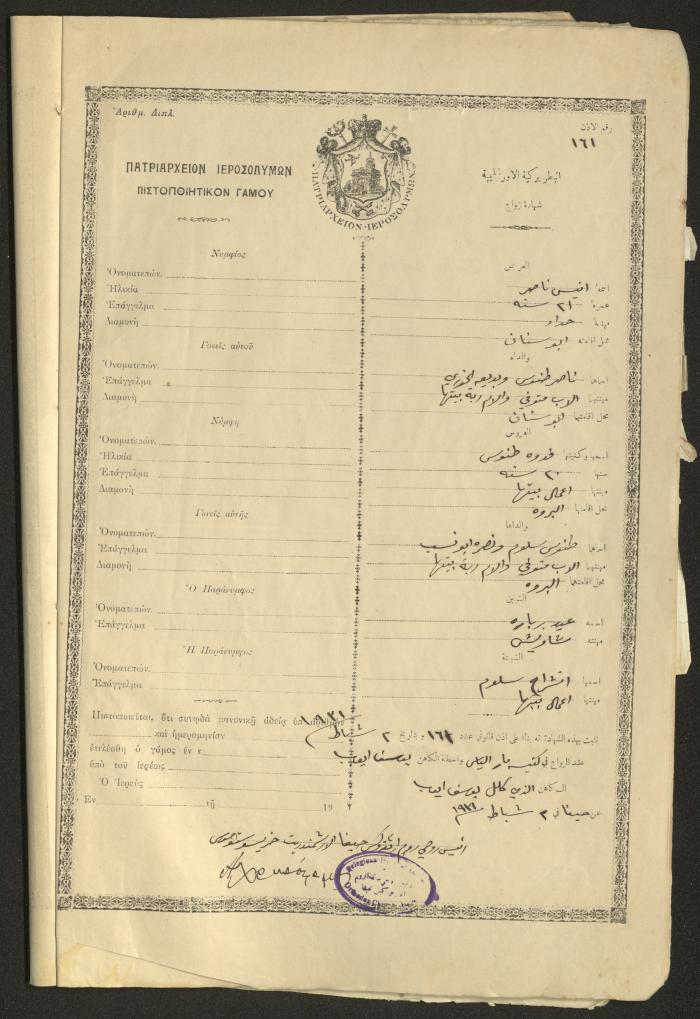 Ἀριθμ. Διπλ.
رقم الاذن
١٦١
ΠΑΤΡΙΑΡΧΕΙΟΝ ΙΕΡΟΣΟΛΥΜΩΝ
ΠΙΣΤΟΠΟΙΗΤΙΚΟΝ ΓΑΜΟΥ
ΠΑΤΡΙΑΡΧΕΙΟΝ·ΙΕΡΟΣΟΛΥΜΩΝ
البطريركية الاورشليمية
شهادة زواج
Νυμφίος
Ὀνοματεπών.
Ἡλικία
Ἐπάγγελμα
Διαμονὴ
Γονεῖς αὐτοῦ
Ὀνοματεπών.
Ἐπάγγελμα
Διαμονὴ
Νύμφη
Ὀνοματεπών.
Ἡλικία
Ἐπάγγελμα
Διαμονὴ
Γονεῖς αὐτῆς
Ὀνοματεπών.
Ἐπάγγελμα
Διαμονὴ
Ὁ Παράνυμφος
Ὀνοματεπών.
Ἐπάγγελμα
Ἡ Παράνυμφος
Ὀνοματεπών.
Ἐπάγγελμα
Πιστοποιεῖται, ὅτι συνῳδὰ κανονικῇ ἀδείᾳ ὑπ' ἀριθμὸν
καὶ ἡμερομηνίαν
ἐτελέσθη ὁ γάμος ἐν
ὑπὸ τοῦ ἱερέως
Ὁ Ἱερεὺς
Ἐν τῇ 19
العريس
اسمه انيس ناصر
عمره ٢١ سنه
مهنته حداد
محل اقامته ابو سنان
والداه
اسماهما ناصر طنوس وبديعه الخوري
مهنتهما الاب متوفي والام ربة بيتها
محل اقامتهما ابو سنان
العروس
اسمها وكنيتها فدوه طنوس
سنها ٢٠ سنه
مهنتها اعمال بيتها
محل اقامتها البروه
والداها
اسماهما طنوس سلوم ونصره ابو نسب
مهنتهما الاب متوفي والام ربة بيتها
محل اقامتهما البروه
الشبين
اسمه عيد برباره
مهنته شاويش
الشبينة
اسمها انشراح سلوم
مهنتها اعمال بيتها
تثبت بهذه الشهادة انه بناء على اذن قانوني عدد ١٦١ وبتاريخ ٢ شباط ١٩٣١
عقد الزواج في كنيسة مار الياس بواسطة الكاهن يوسف ايوب
الكاهن الذي كلل يوسف ايوب
عن حيفا في ٢ شباط ١٩٣١
رئيس روحي روم ارثوذكس حيفا الارشمندريت
Religious
Orthodox